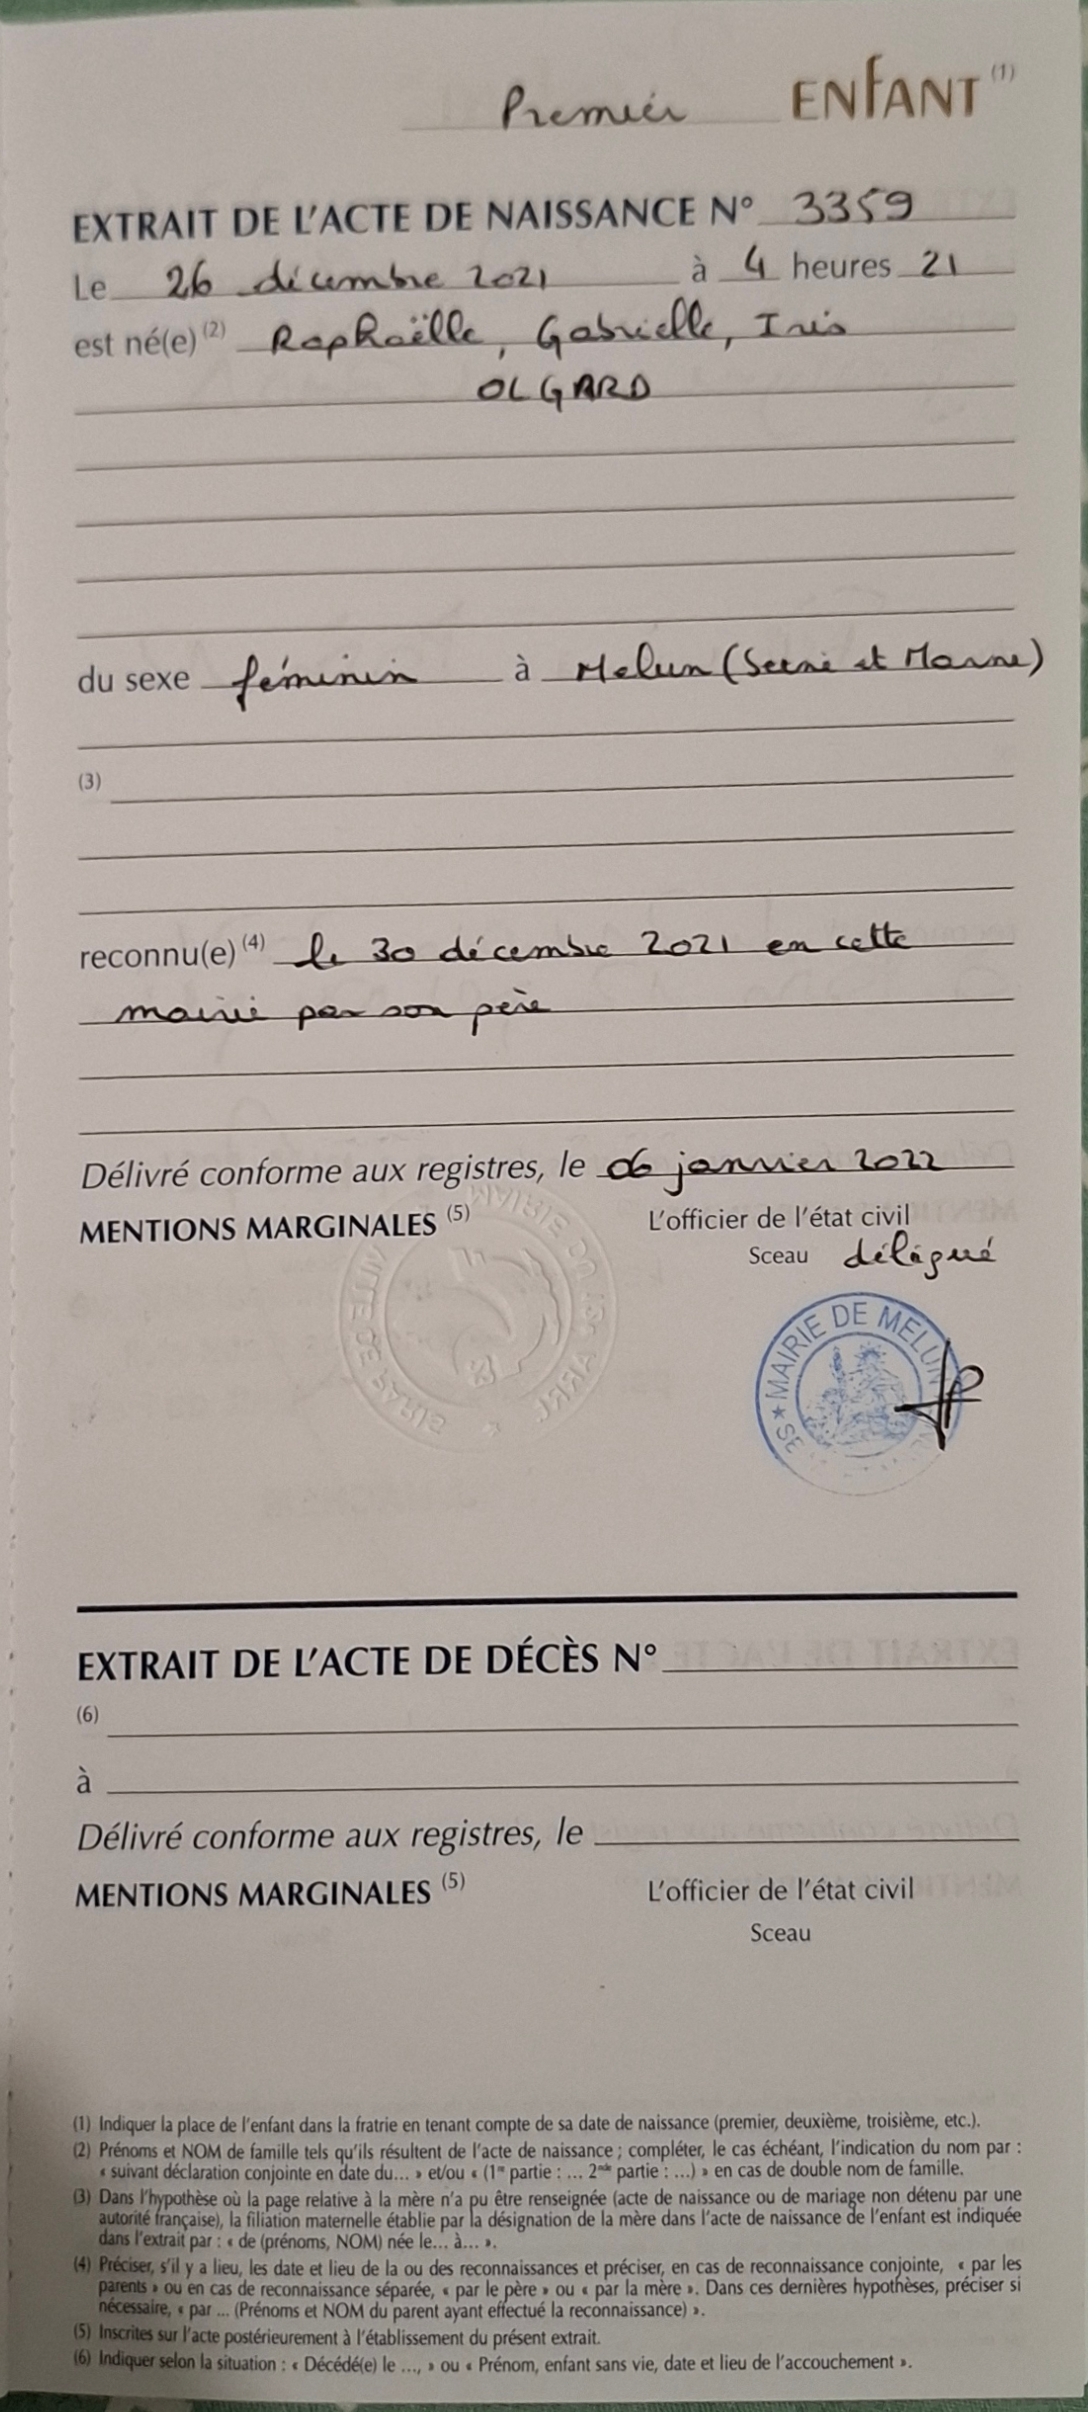 Premier ENFANT (1)
EXTRAIT DE L'ACTE DE NAISSANCE N° 3359
Le 26 décembre 2021 à 4 heures 21
est né(e) (2) Raphaëlle, Gabrielle, Iris
OLGARD
du sexe féminin à Melun (Seine et Marne)
(3)
reconnu(e) (4) le 30 décembre 2021 en cette
mairie par son père
Délivré conforme aux registres, le 06 janvier 2022
MENTIONS MARGINALES (5)
L'officier de l'état civil
Sceau délégué
MAIRIE DU 13e ARRt
VILLE DE PARIS
MAIRIE DE MELUN
EXTRAIT DE L'ACTE DE DÉCÈS N°
(6)
à
Délivré conforme aux registres, le
MENTIONS MARGINALES (5)
L'officier de l'état civil
Sceau
(1) Indiquer la place de l'enfant dans la fratrie en tenant compte de sa date de naissance (premier, deuxième, troisième, etc.).
(2) Prénoms et NOM de famille tels qu'ils résultent de l'acte de naissance ; compléter, le cas échéant, l'indication du nom par :
« suivant déclaration conjointe en date du... » et/ou « (1re partie : ... 2nde partie : ...) » en cas de double nom de famille.
(3) Dans l'hypothèse où la page relative à la mère n'a pu être renseignée (acte de naissance ou de mariage non détenu par une
autorité française), la filiation maternelle établie par la désignation de la mère dans l'acte de naissance de l'enfant est indiquée
dans l'extrait par : « de (prénoms, NOM) née le... à... ».
(4) Préciser, s'il y a lieu, les date et lieu de la ou des reconnaissances et préciser, en cas de reconnaissance conjointe, « par les
parents » ou en cas de reconnaissance séparée, « par le père » ou « par la mère ». Dans ces dernières hypothèses, préciser si
nécessaire, « par ... (Prénoms et NOM du parent ayant effectué la reconnaissance) ».
(5) Inscrites sur l'acte postérieurement à l'établissement du présent extrait.
(6) Indiquer selon la situation : « Décédé(e) le ..., » ou « Prénom, enfant sans vie, date et lieu de l'accouchement ».